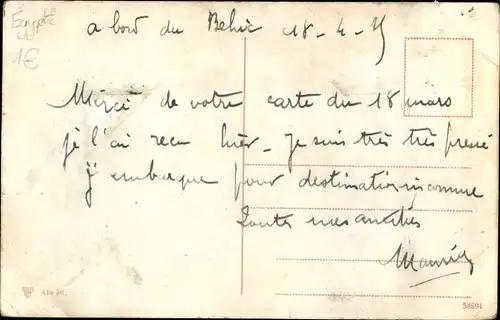 Egypte
1€
a bord du Behic 18-4-15
Merci de votre carte du 18 mars
je l'ai recu hier - je suis très très pressé
j'embarque pour destination inconnue
Toutes mes amitiés
Maurice
54691